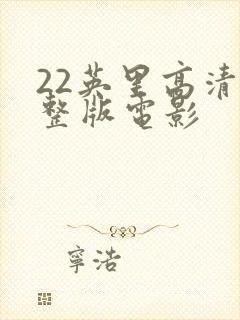 22英里高清
整版电影
寧浩